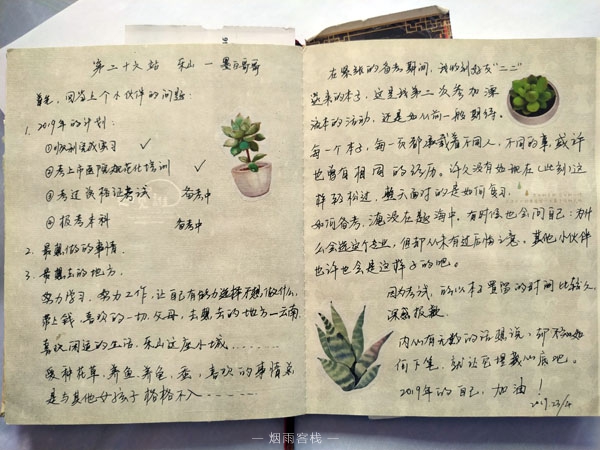 第二十六站 乐山 — 墨白哥哥
首先,回答上个小伙伴的问题
1. 2019年的计划:
①顺利完成实习 ✓
②考上市医院规范化培训 ✓
③考过资格证考试 备考中
④报考本科 备考中
2. 最想做的事情.
3. 最想去的地方.
努力学习、努力工作,让自己有能力选择不想做什么,
带上钱、喜欢的一切、父母,去想去的地方—云南
喜欢闲适的生活,乐山这座小城......
爱种花草、养鱼、养龟、蚕,喜欢的事情总
是与其他女孩子格格不入......
在紧张的备考期间,我收到
送来的本子,这是我第二次参加漂
流本的活动,还是如以前一般期待。
每一个本子,每一页都承载着不同人,不同的事,或许
也曾有相同的经历。许久没有如现在(此刻)这
样轻松过,整天面对的是如何复习,
如何备考,淹没在题海中,有时候也会问自己:为什
么会选这个专业,但却从未有过后悔之意。其他小伙伴
也许也会是这样子的吧。
因为考试,所以本子置留的时间比较久,
深感抱歉
内心有无数的话想说,却不知如
何下笔,就让它埋藏心底吧。
2019年的自己,加油!
— 烟雨客栈 —